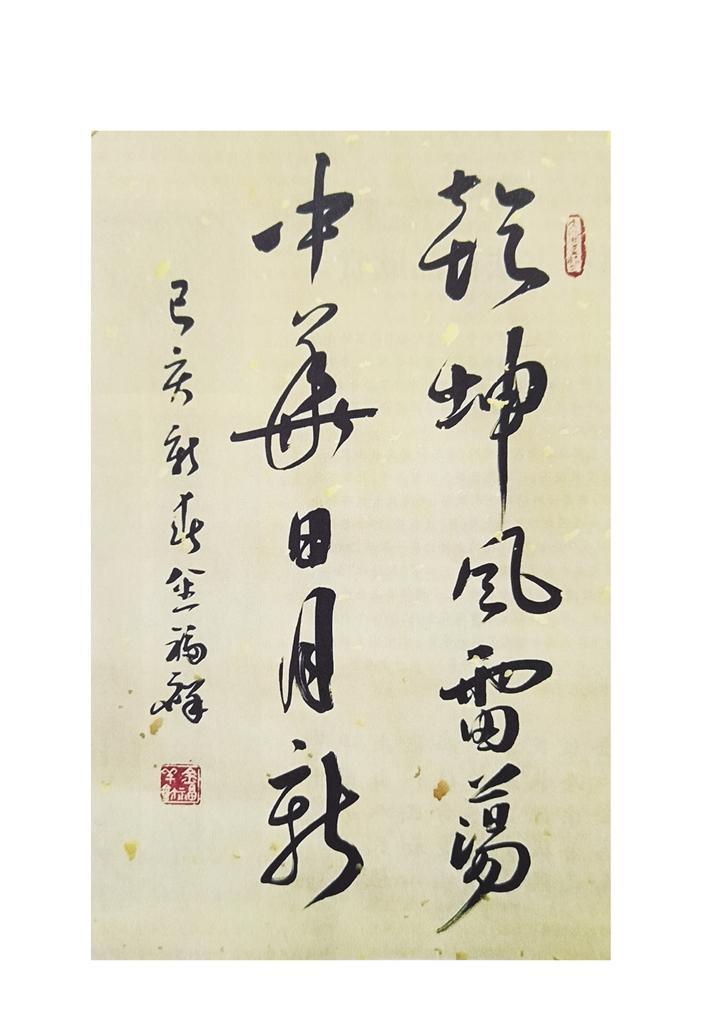 乾坤風雷蕩
中華日月新
己亥新春金福祥